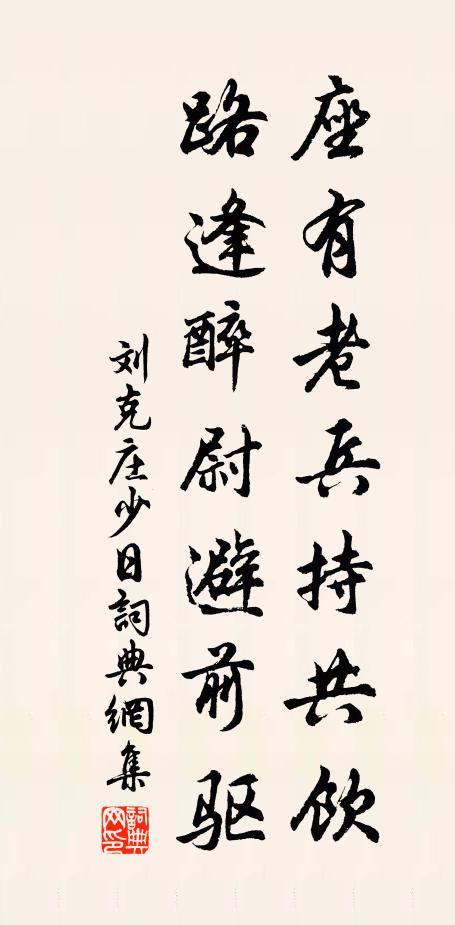 座有老兵持共飲
路逢醉尉避前驱
刘克庄少日詞典網集
詞典
网印